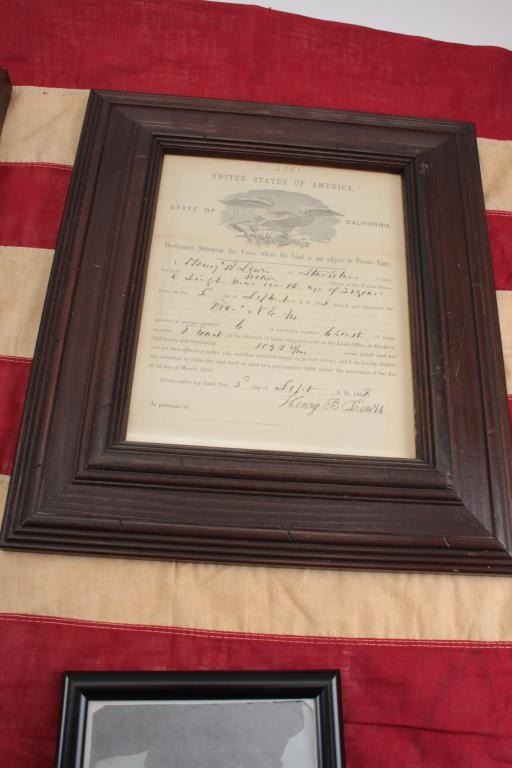 UNITED STATES OF AMERICA,
STATE OF CALIFORNIA
Declaratory Statement for Cases where the Land is not subject to Private Entry
I, Henry B of Stanislaus County
being a Native citizen of the United States
A Single Man over the age of 21 years
have on the 5 day of September A. D. 186 settled and improved the
N E
quarter of section number 6 in township number 6 South of range
number 8 East in the District of lands subject to sale at the Land Office at Stockton,
California and containing acres which land has
not yet been offered at public sale, and thus rendered subject to private entry; and I do hereby declare
my intention to claim the said tract of land as a pre-emption right, under the provision of the Act
of 3d day of March, 1853.
Given under my hand this 5 day of Sept A. D. 1868
Henry B
In presence of